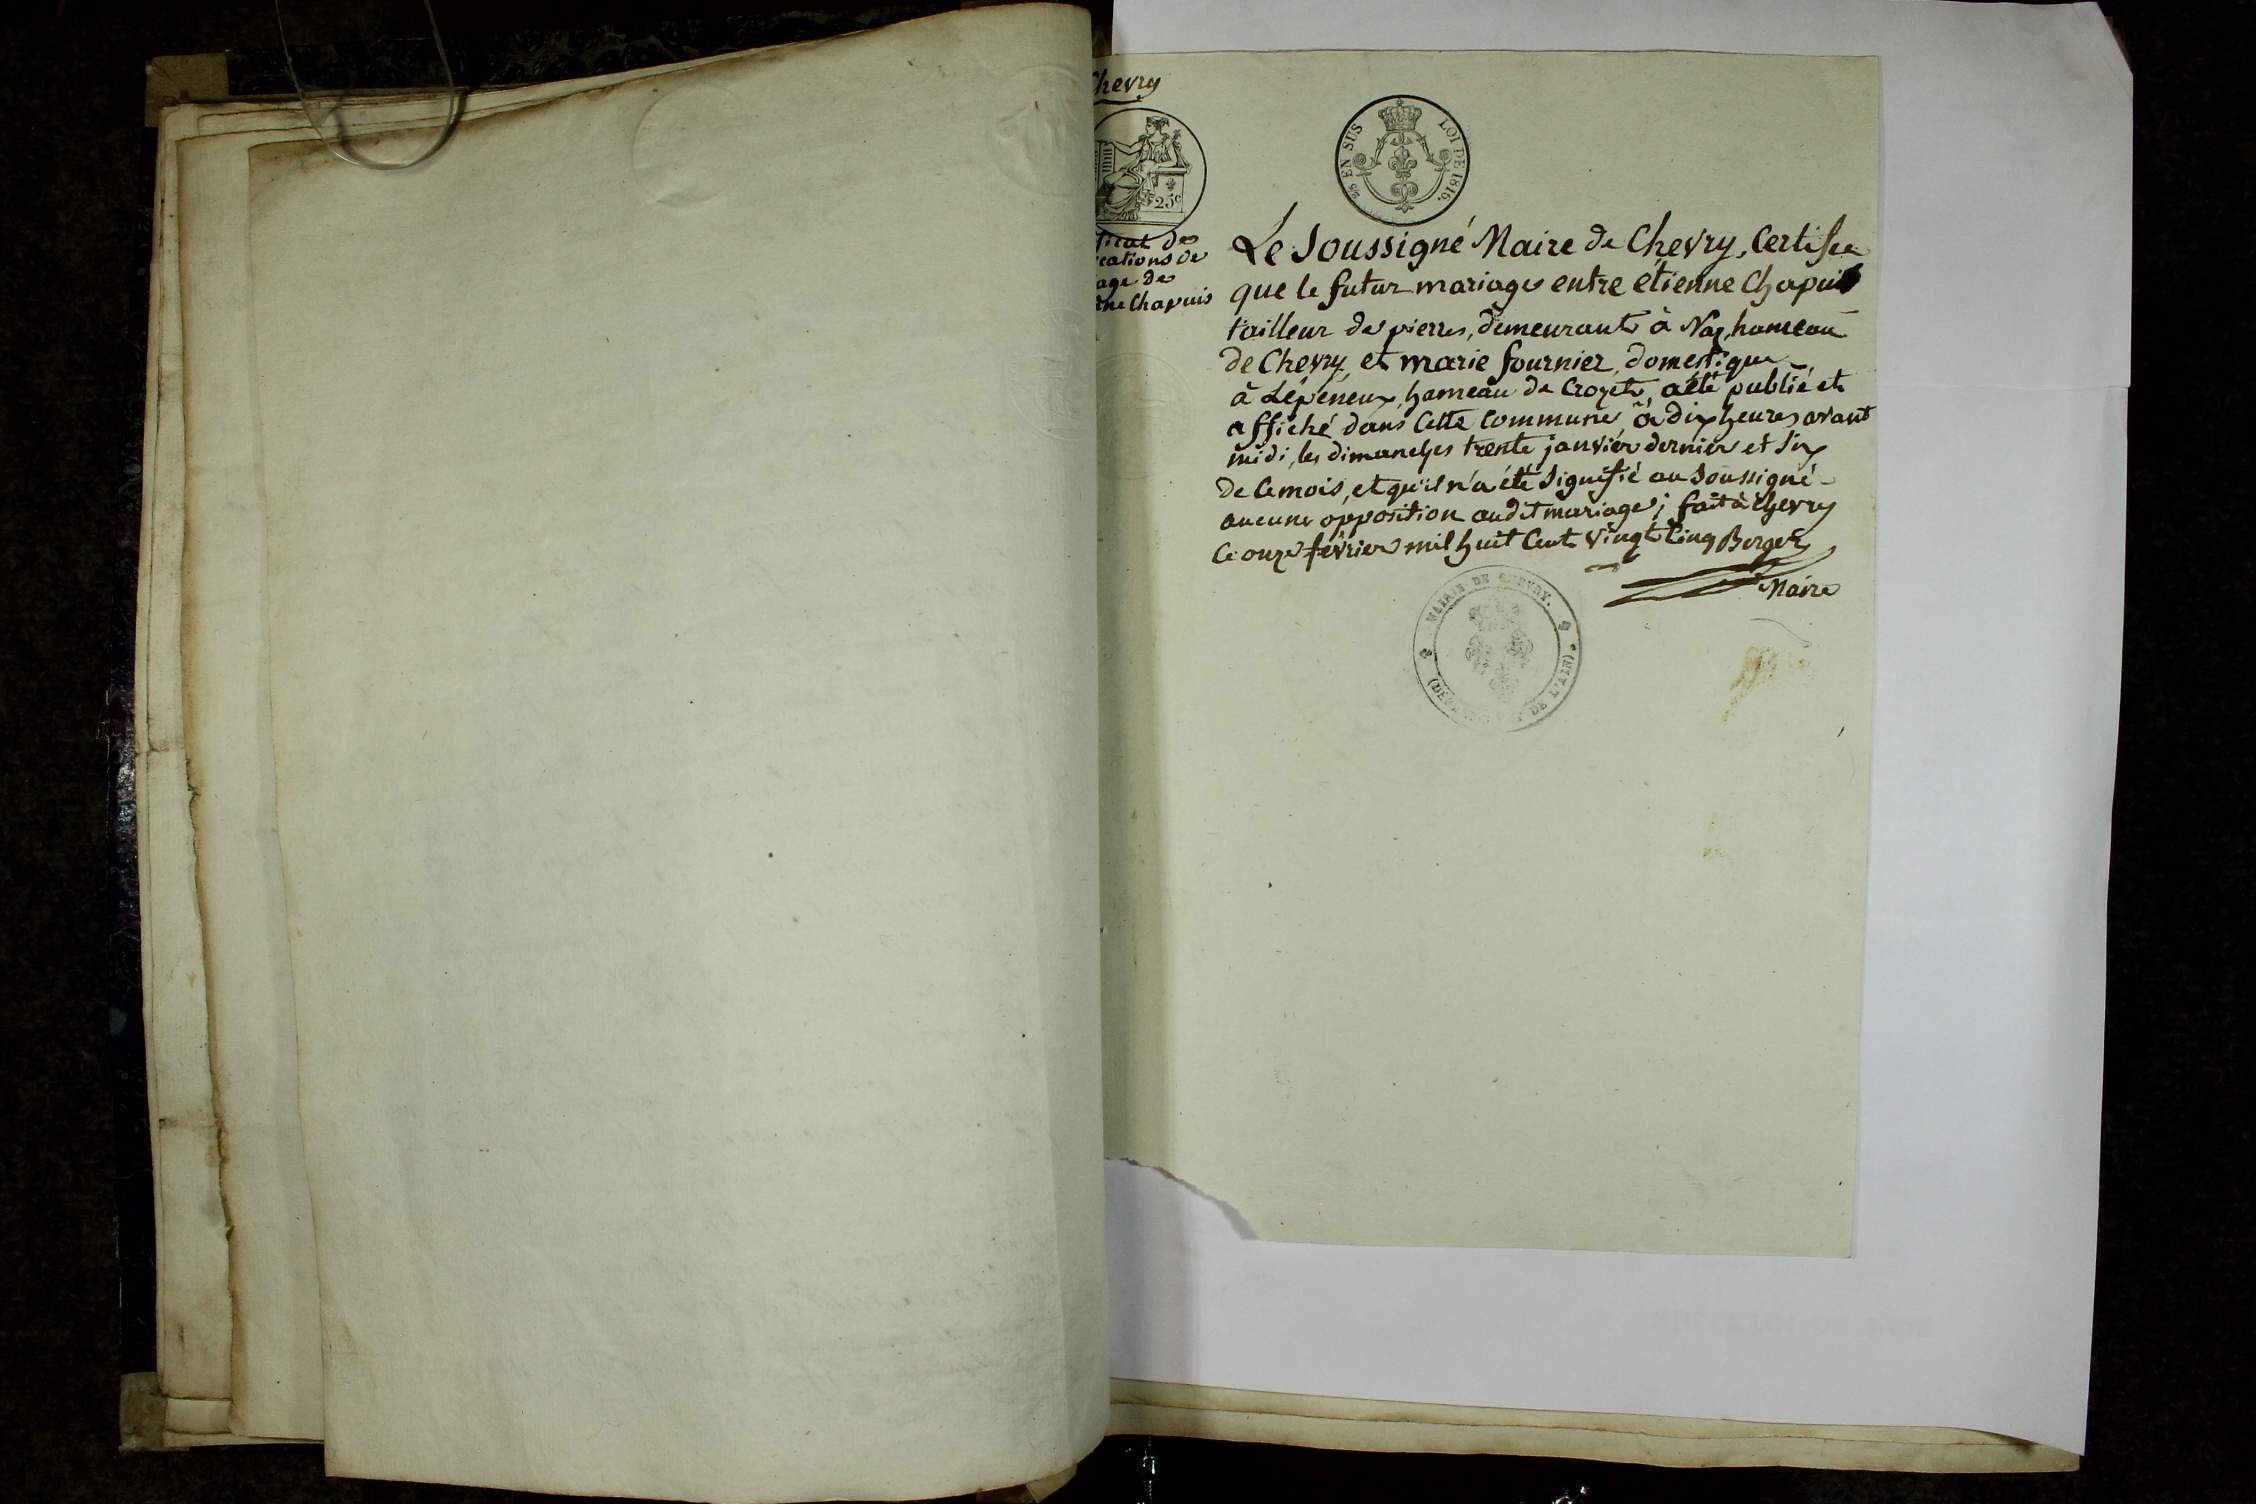 Chevry
25c
EN SUS
LOI DE 1816.
ficat de
cations de
age de
ne Chapuis
Le Soussigné Maire de Chevry, Certifie
que le futur mariage entre étienne Chapuis
tailleur de pierres, demeurant à Naz, hameau
de Chevry, et marie fournier, domestique
à Lépeneux, hameau de Crozet, a été publié et
affiché dans Cette Commune, à dix heures avant
midi, les dimanches trente janvier dernier et Six
de Ce mois, et qu'il n'a été Signifié au Soussigné
aucune opposition audit mariage; fait à Chevry
Ce onze février mil huit Cent Vingt Cinq Berger
Maire
MAIRIE DE CHEVRY.
DE L'AIN